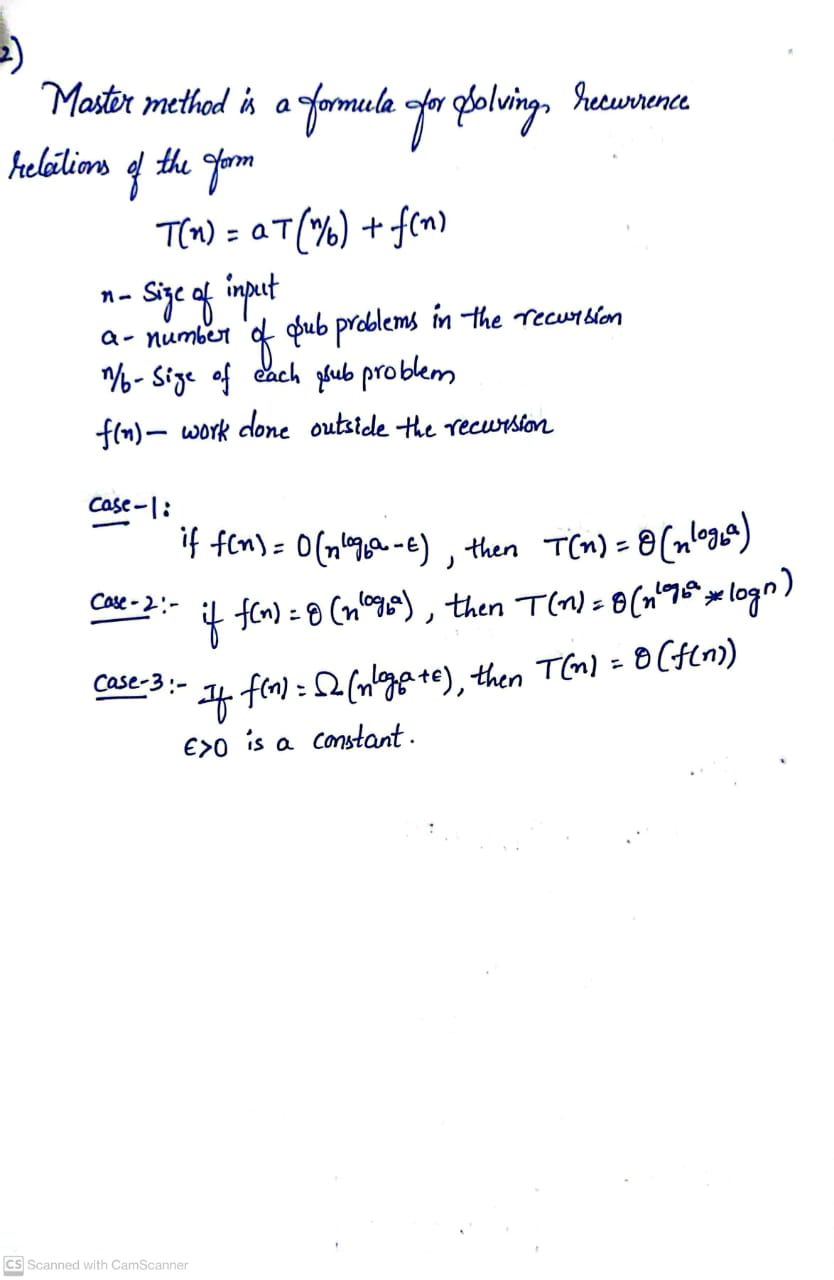 2)
Master method is a formula for solving recurrence
relations of the form
T(n) = aT(n/b) + f(n)
n- Size of input
a- number of sub problems in the recursion
n/b- Size of each sub problem
f(n)- work done outside the recursion
Case-1:
if f(n) = O(n^log_b a-ε), then T(n) = θ(n^log_b a)
Case-2:- if f(n) = θ(n^log_b a), then T(n) = θ(n^log_b a * logn)
Case-3:- If f(n) = Ω(n^log_b a+ε), then T(n) = θ(f(n))
ε>0 is a constant.
CS Scanned with CamScanner